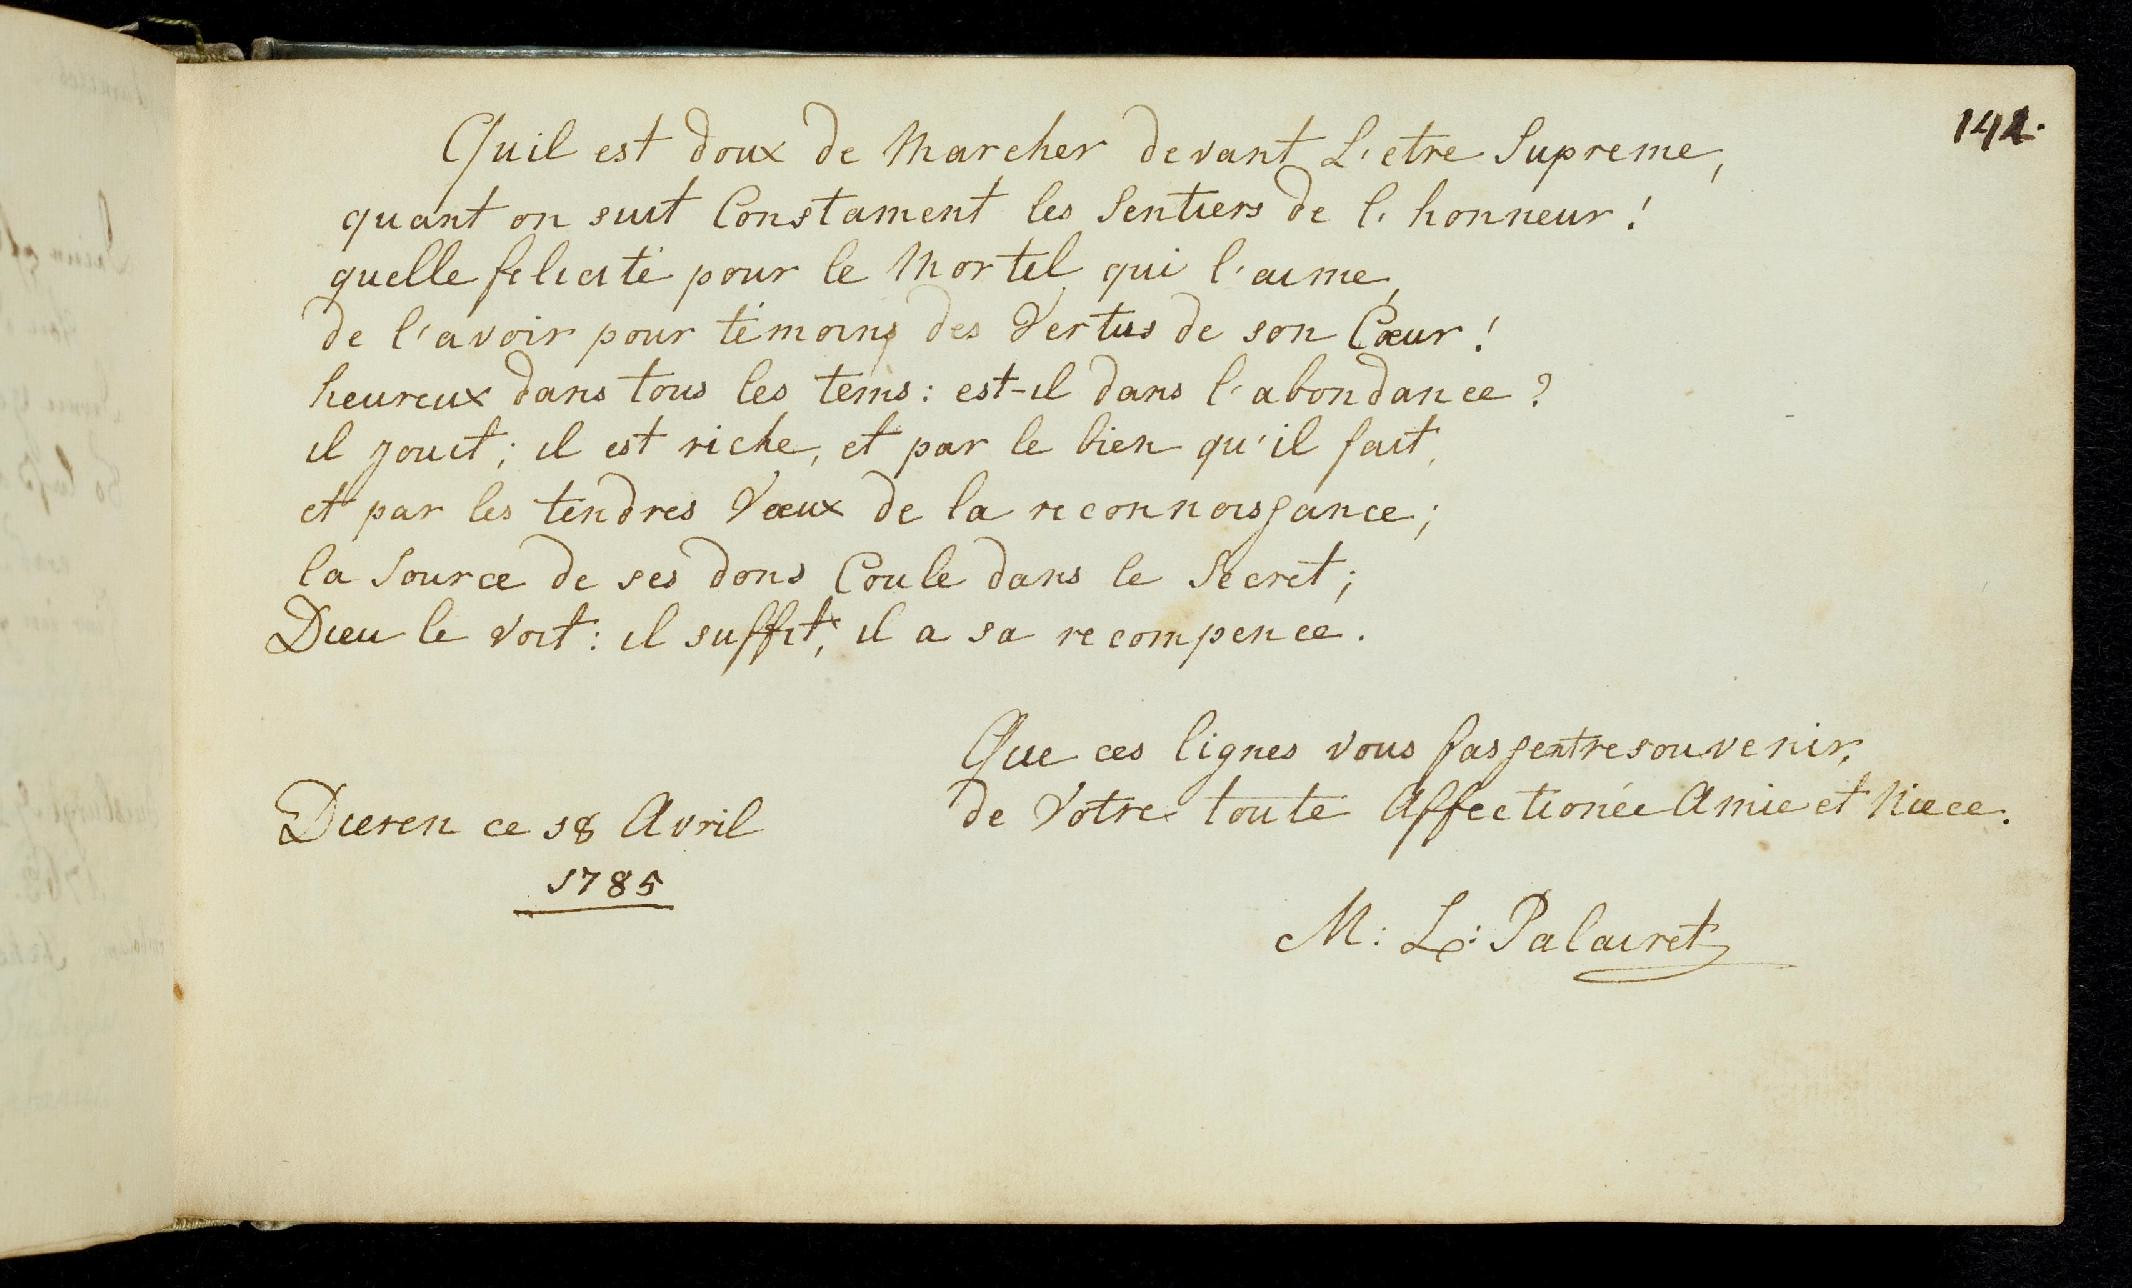 142.
Quil est doux de Marcher devant L'etre Supreme,
quant on suit Constament les Sentiers de l'honneur!
quelle felicité pour le Mortel qui l'aime,
de l'avoir pour témoins des Vertus de son Cœur!
heureux dans tous les tems: est-il dans l'abondance?
il jouit; il est riche, et par le bien qu'il fait,
et par les tendres Vœux de la reconnoissance;
la Source de ses dons Coule dans le Secret;
Dieu le voit: il suffit; il a sa recompence.
Que ces lignes vous fassent resouvenir,
de Votre toute Affectionée Amie et Niece.
Dieren ce 18 Avril
1785
M: L: Palairet